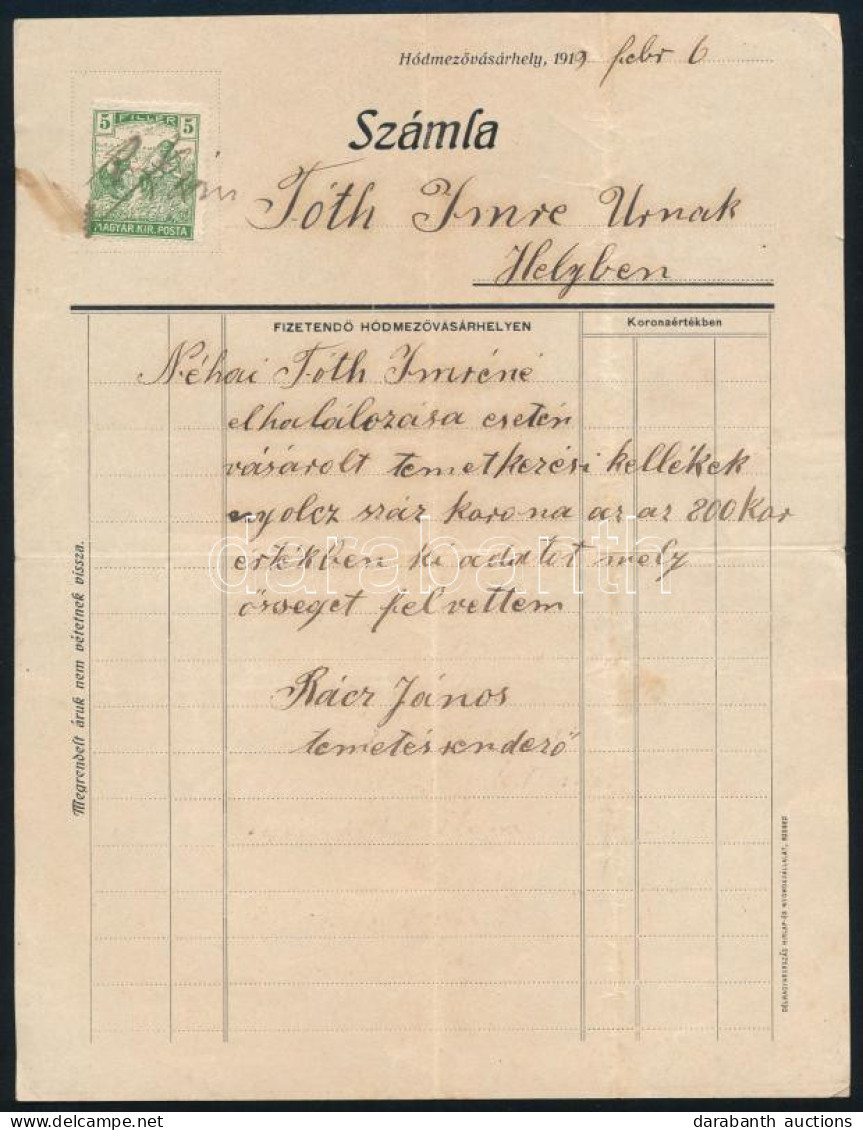 Hódmezővásárhely, 1919 febr 6
Számla
5 FILLÉR 5
MAGYAR KIR. POSTA
Tóth Imre Urnak
Helyben
FIZETENDŐ HÓDMEZŐVÁSÁRHELYEN
Koronaértékben
Néhai Tóth Imréné
elhalálozása esetén
vásárolt temetkezési kellékek
nyolcz száz korona az az 800 Kor
értékben ki adatot mely
össeget felvettem
Rácz János
temetésrendező
Megrendelt áruk nem vétetnek vissza.
DÉLMAGYARORSZÁG HIRLAP-ÉS NYOMDAVÁLLALAT, SZEGED
darabanth
darabanth auctions